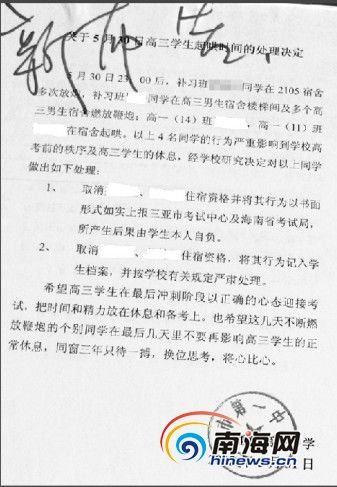 关于5月30日高三学生起哄时间的处理决定
5月30日23:00后,补习班 同学在2105宿舍
多次放炮,补习班 同学在高三男生宿舍楼梯间及多个高
三男生宿舍燃放鞭炮;高一(14)班 ,高一(11)班
在宿舍起哄。以上4名同学的行为严重影响到学校高
考前的秩序及高三学生的休息,经学校研究决定对以上同学
做出如下处理:
1、 取消 、 住宿资格并将其行为以书面
形式如实上报三亚市考试中心及海南省考试局,
所产生后果由学生本人自负。
2、 取消 、 住宿资格,将其行为记入学
生档案,并按学校有关规定严肃处理。
希望高三学生在最后冲刺阶段以正确的心态迎接考
试,把时间和精力放在休息和备考上。也希望这几天不断燃
放鞭炮的个别同学在最后几天里不要再影响高三学生的正
常休息,同窗三年只待一搏,换位思考,将心比心。
市第一中
学
日
南海网
hinews.cn